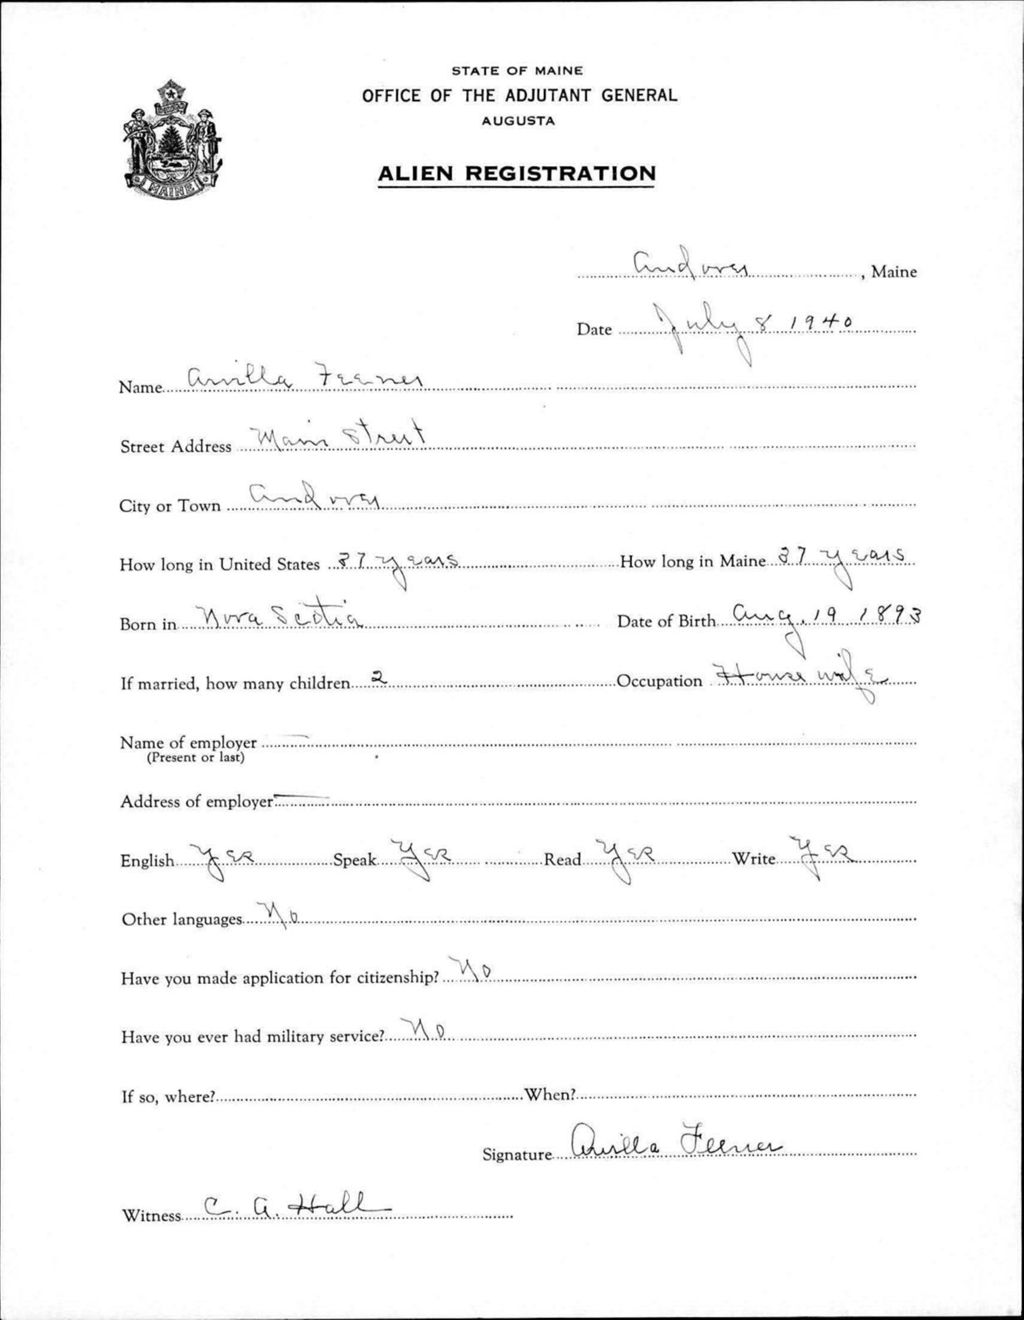 STATE OF MAINE
OFFICE OF THE ADJUTANT GENERAL
AUGUSTA
ALIEN REGISTRATION
MAINE
Andover, Maine
Date July 8 1940
Name Feener
Street Address Main Street
City or Town Andover
How long in United States 37 years How long in Maine 37 years
Born in Nova Scotia Date of Birth Aug, 19 1893
If married, how many children 2 Occupation House wife
Name of employer —
(Present or last)
Address of employer —
English Yes Speak Yes Read Yes Write Yes
Other languages No
Have you made application for citizenship? No
Have you ever had military service? No
If so, where? When?
Signature Feener
Witness C. A. Hall